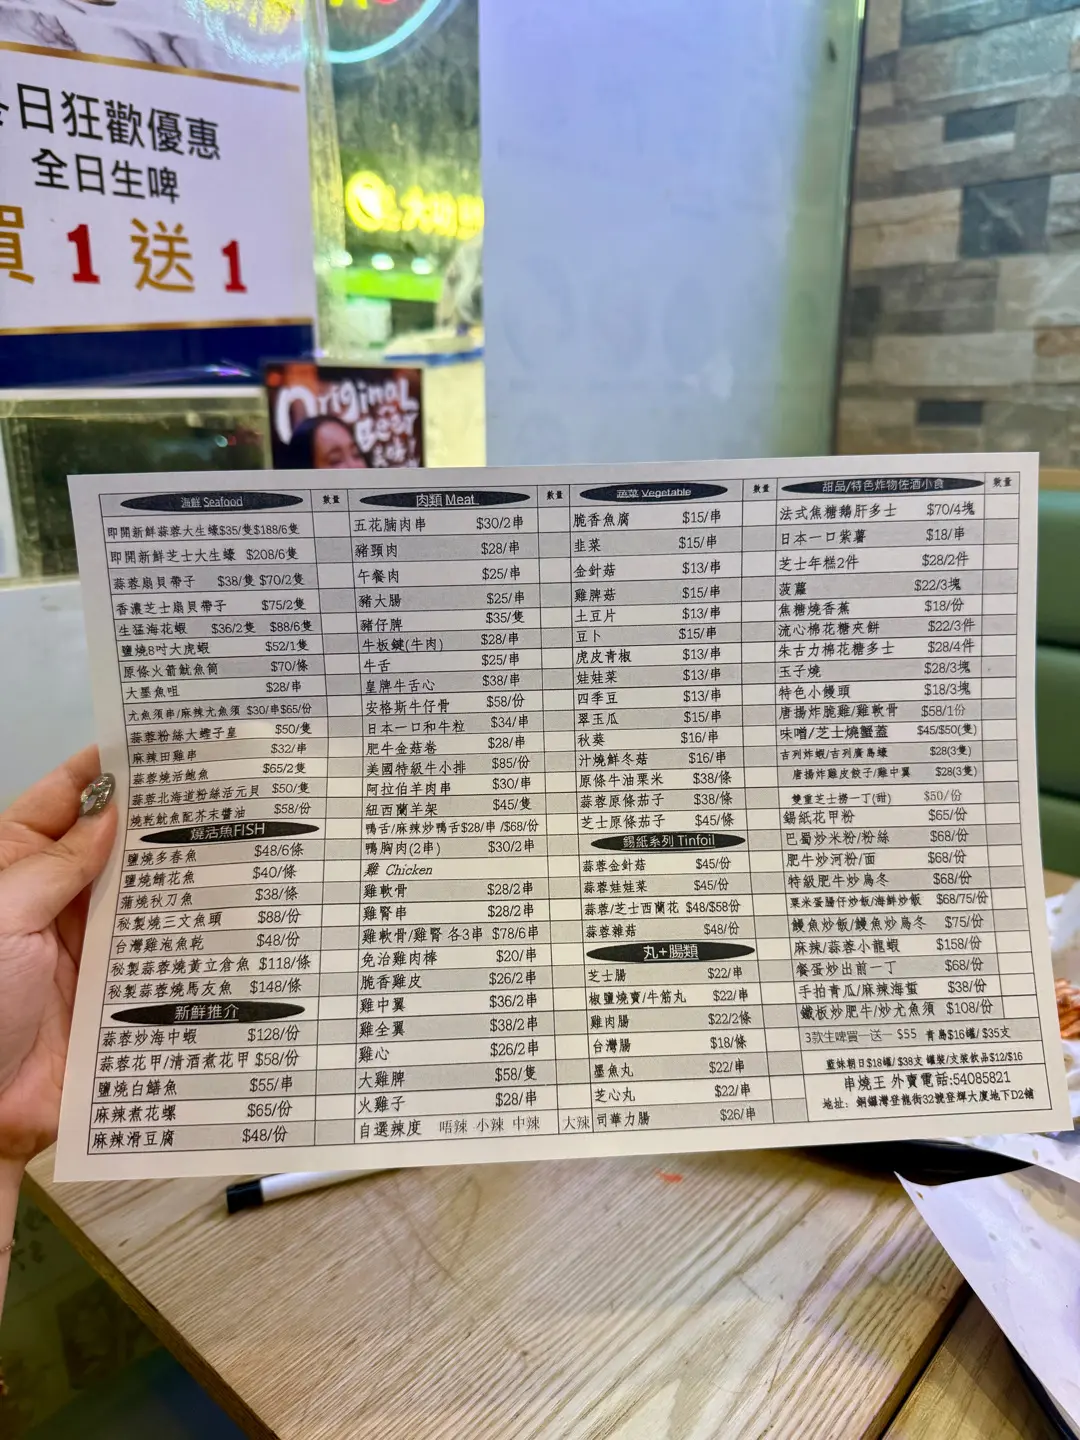 今日狂歡優惠
全日生啤
買1送1
Original
Beer
海鮮 Seafood 數量
即開新鮮蒜蓉大生蠔$35/隻$188/6隻
即開新鮮芝士大生蠔 $208/6隻
蒜蓉扇貝帶子 $38/隻 $70/2隻
香濃芝士扇貝帶子 $75/2隻
生猛海花蝦 $36/2隻 $88/6隻
鹽燒8吋大虎蝦 $52/1隻
原條火箭魷魚筒 $70/條
大墨魚咀 $28/串
尤魚須串/麻辣尤魚須 $30/串$65/份
蒜蓉粉絲大蟶子皇 $50/隻
麻辣田雞串 $32/串
蒜蓉燒活鮑魚 $65/2隻
蒜蓉北海道粉絲活元貝 $50/隻
燒乾魷魚配芥末醬油 $58/份
燒活魚FISH
鹽燒多春魚 $48/6條
鹽燒鯖花魚 $40/條
蒲燒秋刀魚 $38/條
秘製燒三文魚頭 $88/份
台灣雞泡魚乾 $48/份
秘製蒜蓉燒黃立倉魚 $118/條
秘製蒜蓉燒馬友魚 $148/條
新鮮推介
蒜蓉炒海中蝦 $128/份
蒜蓉花甲/清酒煮花甲 $58/份
鹽燒白鱔魚 $55/串
麻辣煮花螺 $65/份
麻辣滑豆腐 $48/份
肉類 Meat 數量
五花腩肉串 $30/2串
豬頸肉 $28/串
午餐肉 $25/串
豬大腸 $25/串
豬仔脾 $35/隻
牛板鍵(牛肉) $28/串
牛舌 $25/串
皇牌牛舌心 $38/串
安格斯牛仔骨 $58/份
日本一口和牛粒 $34/串
肥牛金菇卷 $28/串
美國特級牛小排 $85/份
阿拉伯羊肉串 $30/串
紐西蘭羊架 $45/隻
鴨舌/麻辣炒鴨舌$28/串 /$68/份
鴨胸肉(2串) $30/2串
雞 Chicken
雞軟骨 $28/2串
雞腎串 $28/2串
雞軟骨/雞腎 各3串 $78/6串
免治雞肉棒 $20/串
脆香雞皮 $26/2串
雞中翼 $36/2串
雞全翼 $38/2串
雞心 $26/2串
大雞脾 $58/隻
火雞子 $28/串
自選辣度 唔辣 小辣 中辣 大辣
蔬菜 Vegetable 數量
脆香魚腐 $15/串
韭菜 $15/串
金針菇 $13/串
雞脾菇 $15/串
土豆片 $13/串
豆卜 $15/串
虎皮青椒 $13/串
娃娃菜 $13/串
四季豆 $13/串
翠玉瓜 $15/串
秋葵 $16/串
汁燒鮮冬菇 $16/串
原條牛油粟米 $38/條
蒜蓉原條茄子 $38/條
芝士原條茄子 $45/條
錫紙系列 Tinfoil
蒜蓉金針菇 $45/份
蒜蓉娃娃菜 $45/份
蒜蓉/芝士西蘭花 $48/$58份
蒜蓉雜菇 $48/份
丸+腸類
芝士腸 $22/串
椒鹽燒賣/牛筋丸 $22/串
雞肉腸 $22/2條
台灣腸 $18/條
墨魚丸 $22/串
芝心丸 $22/串
司華力腸 $26/串
甜品/特色炸物佐酒小食 數量
法式焦糖鵝肝多士 $70/4塊
日本一口紫薯 $18/串
芝士年糕2件 $28/2件
菠蘿 $22/3塊
焦糖燒香蕉 $18/份
流心棉花糖夾餅 $22/3件
朱古力棉花糖多士 $28/4件
玉子燒 $28/3塊
特色小饅頭 $18/3塊
唐揚炸脆雞/雞軟骨 $58/1份
味噌/芝士燒蟹蓋 $45/$50(隻)
吉列炸蝦/吉列廣島蠔 $28(3隻)
唐揚炸雞皮餃子/雞中翼 $28(3隻)
雙重芝士撈一丁(甜) $50/份
錫紙花甲粉 $65/份
巴蜀炒米粉/粉絲 $68/份
肥牛炒河粉/面 $68/份
特級肥牛炒烏冬 $68/份
粟米蛋腸仔炒飯/海鮮炒飯 $68/75/份
鰻魚炒飯/鰻魚炒烏冬 $75/份
麻辣/蒜蓉小龍蝦 $158/份
餐蛋炒出前一丁 $68/份
手拍青瓜/麻辣海蜇 $38/份
鐵板炒肥牛/炒尤魚須 $108/份
3款生啤買一送一 $55 青島$16罐/ $35支
藍妹朝日$18罐/ $38支 罐裝/支裝飲品$12/$16
串燒王 外賣電話:54085821
地址: 銅鑼灣登龍街32號登輝大廈地下D2舖